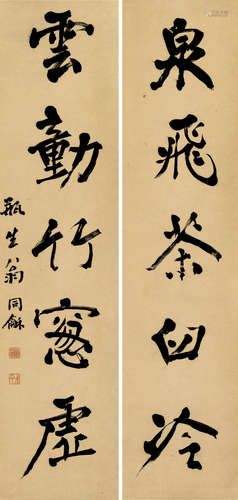 泉飛茶臼冷
雲動竹窗虛
瓶生翁同龢